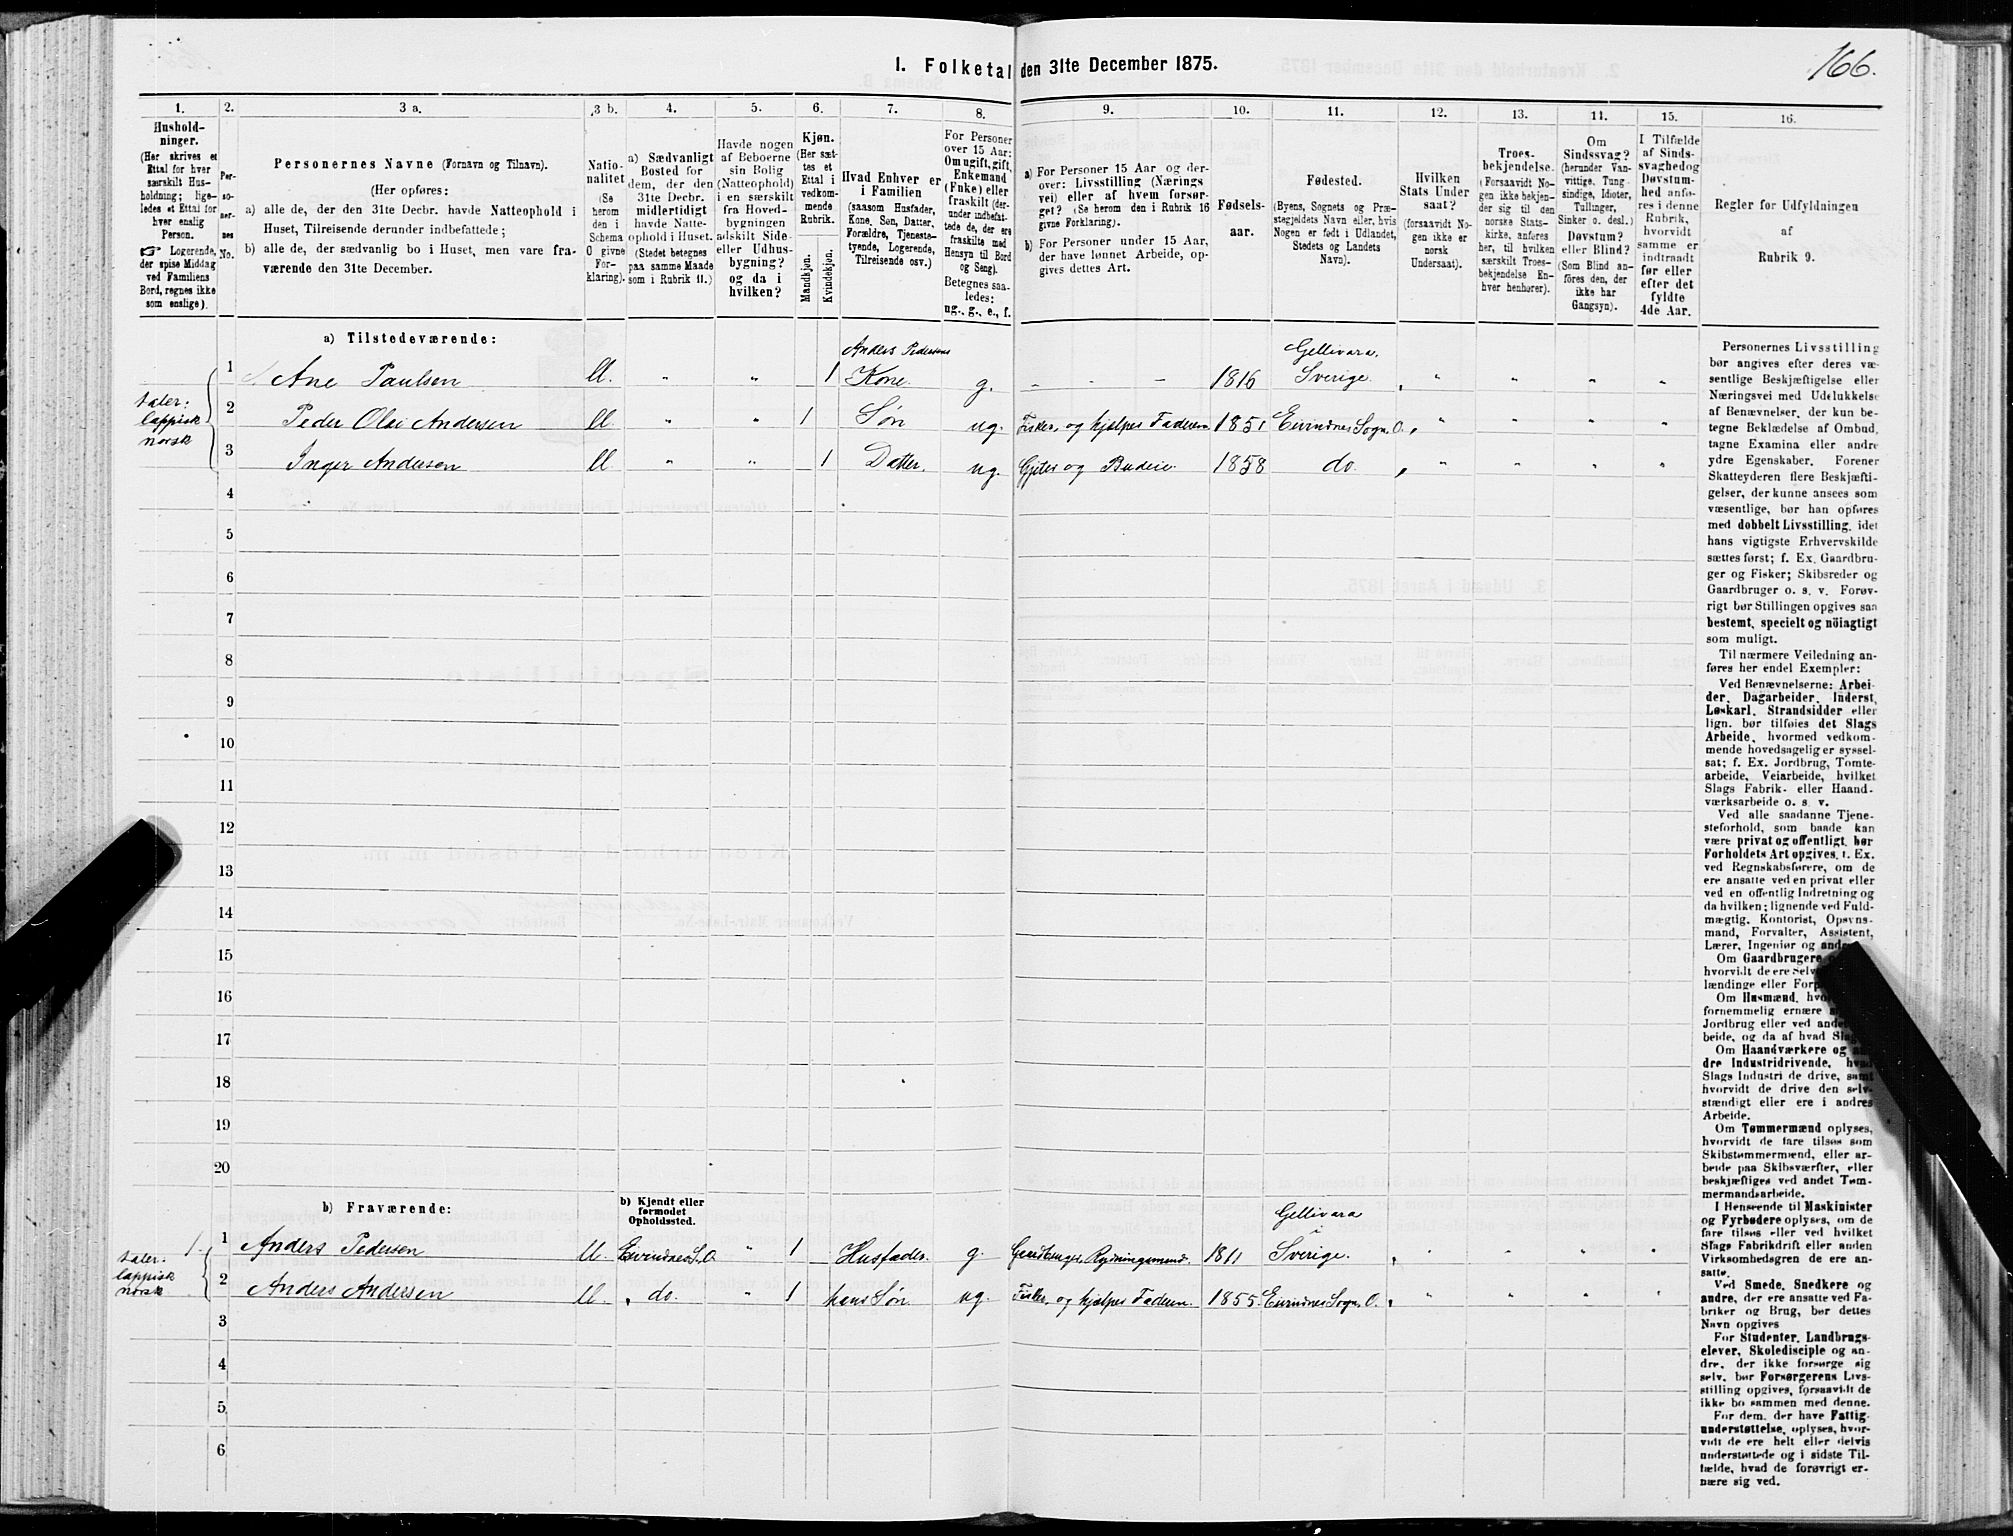 166.
I. Folketal den 31te December 1875.
1. 2. 3 a. 3 b. 4. 5. 6. 7. 8. 9. 10. 11. 12. 13. 14. 15. 16.
Hushold-
ninger.
(Her skrives et
Ettal for hver
særskilt Hus-
holdning; lige-
ledes et Ettal for
hver enslig
Person.
☞ Logerende,
der spise Middag
ved Familiens
Bord, regnes ikke
som enslige).
Per-
so-
ner-
nes
No.
Personernes Navne (Fornavn og Tilnavn).
(Her opføres:
a) alle de, der den 31te Decbr. havde Natteophold i
Huset, Tilreisende derunder indbefattede;
b) alle de, der sædvanlig bo i Huset, men vare fra-
værende den 31te December.
Natio-
nalitet
(Se
herom
den i
Schema
O givne
For-
klaring).
a) Sædvanligt
Bosted for
dem, der den
31te Decbr.
midlertidigt
havde Natte-
ophold i Huset.
(Stedet betegnes
paa samme Maade
som i Rubrik 11.)
Havde nogen
af Beboerne
sin Bolig
(Natteophold)
i en særskilt
fra Hoved-
bygningen
adskilt Side-
eller Udhus-
bygning?
og da i
hvilken?
Kjøn.
(Her sæt-
tes et
Ettal i
vedkom-
mende
Rubrik.
Mandkjøn.
Kvindekjøn.
Hvad Enhver er
i Familien
(saasom Husfader,
Kone, Søn, Datter,
Forældre, Tjeneste-
tyende, Logerende,
Tilreisende osv.)
For Personer
over 15 Aar:
Om ugift, gift,
Enkemand
(Enke) eller
fraskilt (der-
under indbefat-
tede de, der ere
fraskilte med
Hensyn til Bord
og Seng).
Betegnes saa-
ledes:
ug., g., e., f.
a) For Personer 15 Aar og der-
over: Livsstilling (Nærings
vei) eller af hvem forsør-
get? (Se herom den i Rubrik 16
givne Forklaring).
b) For Personer under 15 Aar,
der have lønnet Arbeide, op-
gives dettes Art.
Fødsels-
aar.
Fødested.
(Byens, Sognets og Præ-
stegjeldets Navn eller, hvis
Nogen er født i Udlandet,
Stedets og Landets
Navn).
Hvilken
Stats Under
saat?
(forsaavidt No-
gen ikke er
norsk
Undersaat).
Troes-
bekjendelse.
(Forsaavidt No-
gen ikke bekjen-
der sig til den
norske Stats-
kirke, anføres
her, til hvilken
særskilt Troes-
bekjendelse En-
hver henhører).
Om
Sindssvag?
(herunder Van-
vittige, Tung-
sindige, Idioter,
Tullinger,
Sinker o. desl.)
Døvstum?
eller Blind?
(Som Blind an-
føres den, der
ikke har
Gangsyn).
I Tilfælde
af Sinds-
svaghed og
Døvstum-
hed anfø-
res i denne
Rubrik,
hvorvidt
samme er
indtraadt
før eller
efter det
fyldte
4de Aar.
Regler for Udfyldningen
af
Rubrik 9.
a) Tilstedeværende:
taler:
lappisk
norsk
Anders Pedersens Gellivara.
1 Ane Paulsen " " 1 Kone g. - - - 1816 Sverige. " " " "
2 Peder Olai Andersen " " 1 Søn ug. Fisker, og hjælper Faderen 1851 Eivindnes Sogn. O. " " " "
3 Inger Andersen " " 1 Datter. ug. Gjeter og Budeie. 1858 do. " " " "
4
5
6
7
8
9
10
11
12
13
14
15
16
17
18
19
20
b) Fraværende:
b) Kjendt eller
formodet
Opholdssted.
taler:
lappisk
norsk
Gellivara
i
1 1 Anders Pedersen Eivindnes S. O " 1 Husfader. g. Gardbruger, Rydningsmand. 1811 Sverige.
2 Anders Andersen do. " 1 hans Søn ug. Fisker, og hjælper Faderen. 1855. Eivindnes Sogn. O. " " " "
3
4
5
6
Personernes Livsstilling
bør angives efter deres væ-
sentlige Beskjæftigelse eller
Næringsvei med Udelukkelse
af Benævnelser, der kun be-
tegne Beklædelse af Ombud,
tagne Examina eller andre
ydre Egenskaber. Forener
Skatteyderen flere Beskjæfti-
gelser, der kunne ansees som
væsentlige, bør han opføres
med dobbelt Livsstilling, idet
hans vigtigste Erhvervskilde
sættes først; f. Ex. Gaardbru-
ger og Fisker; Skibsreder og
Gaardbruger o. s. v. Forøv-
rigt bør Stillingen opgives saa
bestemt, specielt og nöiagtigt
som muligt.
Til nærmere Veiledning an-
føres her endel Exempler:
Ved Benævnelserne: Arbei-
der, Dagarbeider, Inderst,
Løskarl, Strandsidder eller
lign. bør tilføies det Slags
Arbeide, hvormed vedkom-
mende hovedsagelig er syssel-
sat; f. Ex. Jordbrug, Tomte-
arbeide, Veiarbeide, hvilket
Slags Fabrik- eller Haand-
værksarbeide o. s. v.
Ved alle saadanne Tjene-
steforhold, som baade kan
være privat og offentligt, bør
Forholdets Art opgives, t. Ex.
ved Regnskabsførere, om de
ere ansatte ved en privat eller
ved en offentlig Indretning og
da hvilken; lignende ved Fuld-
mægtig, Kontorist, Opsyns-
mand, Forvalter, Assistent,
Lærer, Ingeniør og
Om Gaardbrugere
hvorvidt de ere
lændinge eller
Om Husmænd,
fornemmelig ernære
Jordbrug eller ved
beide, og da af hvad
Om Haandværkere og
dre Industridrivende,
Slags Industri de drive, samt
hvorvidt de drive den selv-
stændigt eller ere i andres
Arbeide.
Om Tømmermænd oplyses,
hvorvidt de fare tilsøs som
Skibstømmermænd, eller ar-
beide paa Skibsværfter, eller
beskjæftiges ved andet Tøm-
mermandsarbeide.
I Henseende til Maskinister
og Fyrbødere oplyses, om de
fare tilsøs eller ved hvilket
Slags Fabrikdrift eller anden
Virksomhedsgren de ere an-
satte.
Ved Smede, Snedkere og
andre, der ere ansatte ved Fa-
briker og Brug, bør dettes
Navn opgives
For Studenter, Landbrugs-
elever, Skoledisciple og an-
dre, der ikke forsørge sig
selv, bør Forsørgerens Livs-
stilling opgives, forsaavidt de
ikke bo sammen med denne.
For dem, der have Fattig-
understøttelse, oplyses, hvor-
vidt de ere helt eller delvis
understøttede og i sidste Til-
fælde, hvad de forøvrigt er-
nære sig ved.